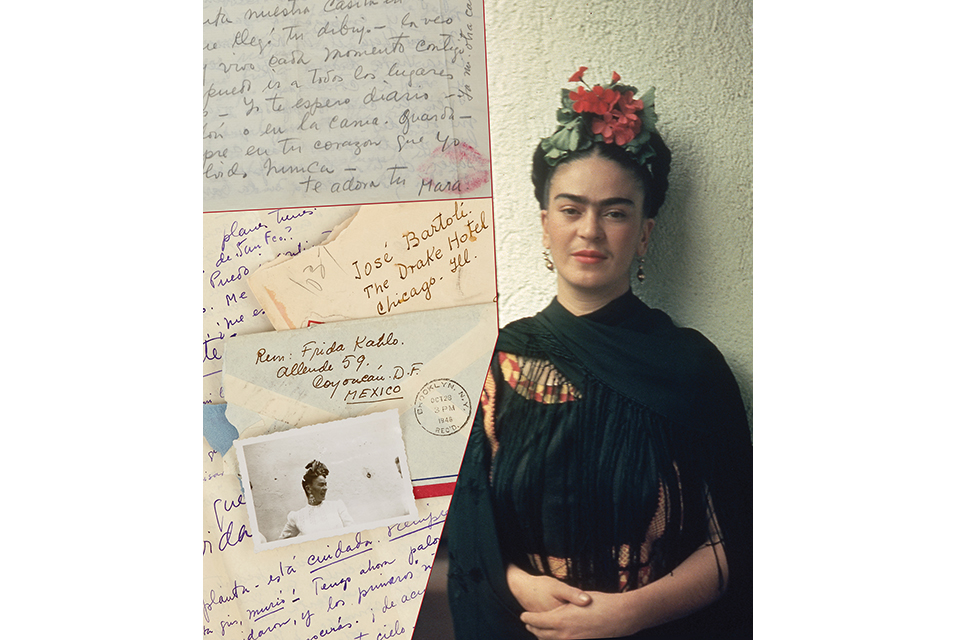 nta nuestra casita en
que llegó tu dibujo. — la veo
y vivo cada momento contigo
puedo ir a todos los lugares
s — Yo te espero diario —
o en la cama. Guarda —
pre en tu corazon que yo
olvido nunca —
te adora tu Mara.
Ya mi otra ca
planes tienes.
de San Fco?
Puedo
Me
José Bartolí.
The Drake Hotel
Chicago. Ill.
Rem: Frida Kahlo.
Allende 59.
Coyoacán. D.F.
MEXICO
BROOKLYN, N.Y.
OCT 28
3 PM
1946
REC'D.
que
vida
planta – está cuidada. Siempre
gris, murió! Tengo ahora palo
daron, y los primeros
¡ de acu